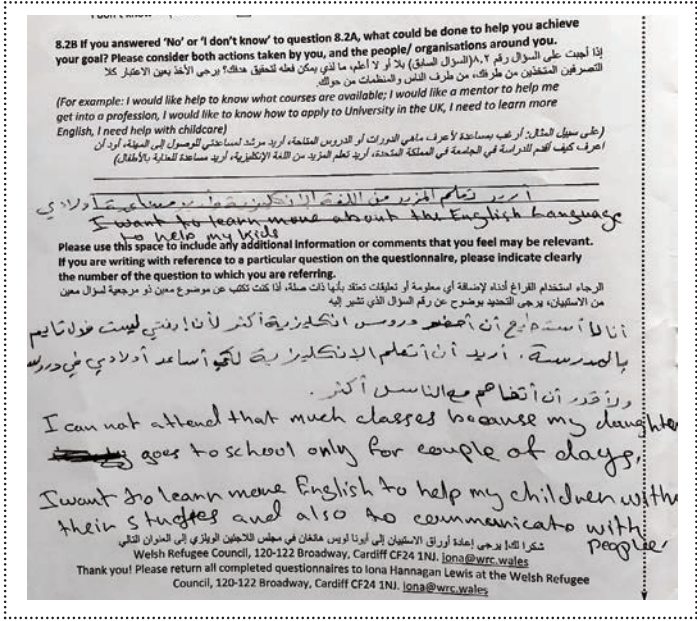 8.2B If you answered ‘No’ or ‘I don’t know’ to question 8.2A, what could be done to help you achieve
your goal? Please consider both actions taken by you, and the people/ organisations around you.
إذا أجبت على السؤال رقم ٨,٢ (السؤال السابق) بلا أو لا أعلم، ما لذي يمكن فعله لتحقيق هدفك؟ يرجى الأخذ بعين الاعتبار كلا
التصرفين المتخذين من طرفك، من طرف الناس والمنظمات من حولك.
(For example: I would like help to know what courses are available; I would like a mentor to help me
get into a profession, I would like to know how to apply to University in the UK, I need to learn more
English, I need help with childcare)
(على سبيل المثال: أرغب بمساعدة لأعرف ماهي الدورات أو الدروس المتاحة، أريد مرشد لمساعدتي للوصول إلى المهنة، أود أن
اعرف كيف أقدم للدراسة في الجامعة في المملكة المتحدة، أريد تعلم المزيد من اللغة الإنكليزية، أريد مساعدة للعناية بالأطفال)
أريد تعلم المزيد من اللغة الإنكليزية أولادي
I want to learn more about the English Language
to help my kids
Please use this space to include any additional Information or comments that you feel may be relevant.
If you are writing with reference to a particular question on the questionnaire, please indicate clearly
the number of the question to which you are referring.
الرجاء استخدام الفراغ أدناه لإضافة أي معلومة أو تعليقات تعتقد بأنها ذات صلة، اذا كنت تكتب عن موضوع معين ذو مرجعية لسؤال معين
من الاستبيان، يرجى التحديد بوضوح عن رقم السؤال الذي تشير إليه
أنا لا أستطيع أن أحضر دروس انكليزية أكثر لأن إبنتي ليست فول تايم
بالمدرسة. أريد أن أتعلم الإنكليزية أساعد أولادي في دروسهم
ولأقدر أن أتفاهم مع الناس أكثر.
I can not attend that much classes because my daughter
goes to school only for couple of days,
I want to learn more English to help my children with
their studies and also to communicate with
people.
شكرا لك! يرجى إعادة أوراق الاستبيان إلى أيونا لويس هانغان في مجلس اللاجئين الويلزي إلى العنوان التالي
Welsh Refugee Council, 120-122 Broadway, Cardiff CF24 1NJ. Iona@wrc.wales
Thank you! Please return all completed questionnaires to Iona Hannagan Lewis at the Welsh Refugee
Council, 120-122 Broadway, Cardiff CF24 1NJ. Iona@wrc.wales